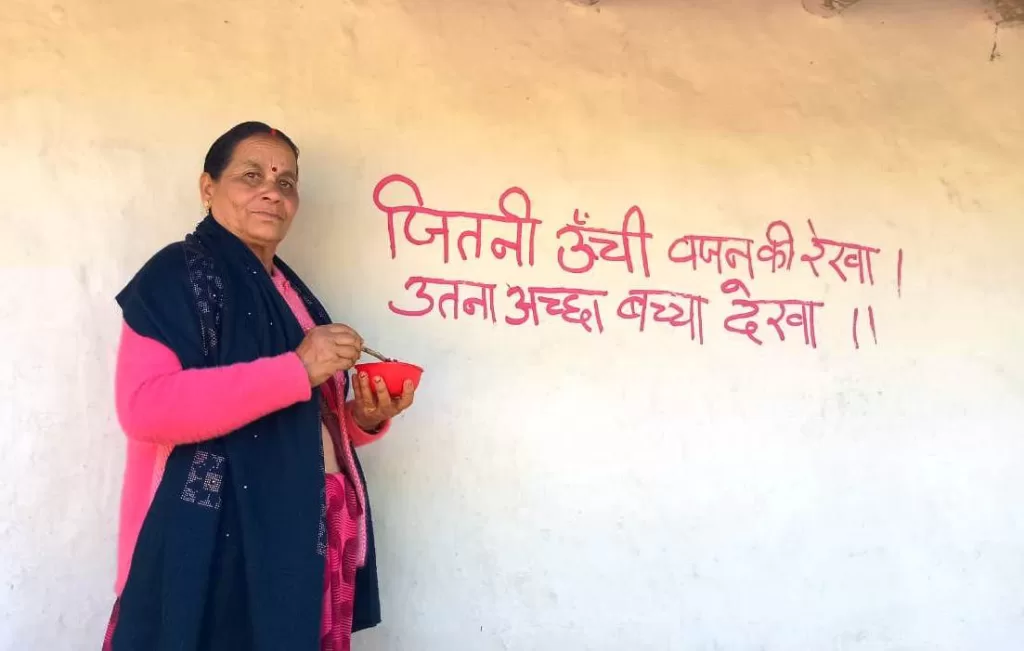 जितनी ऊँची वजनू की रेखा ।
उतना अच्छा बच्चा देखा ।।